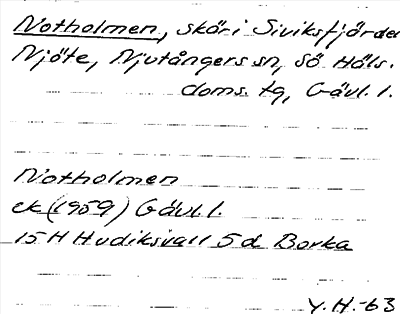 Notholmen, skär i Siviksfjärde
Njöte, Njutångers sn, Sö Häls.
doms. tg, Gävl. l.
Notholmen
ek (1959) Gävl. l.
15 H Hudiksvall 5 d Borka
Y. H. -63